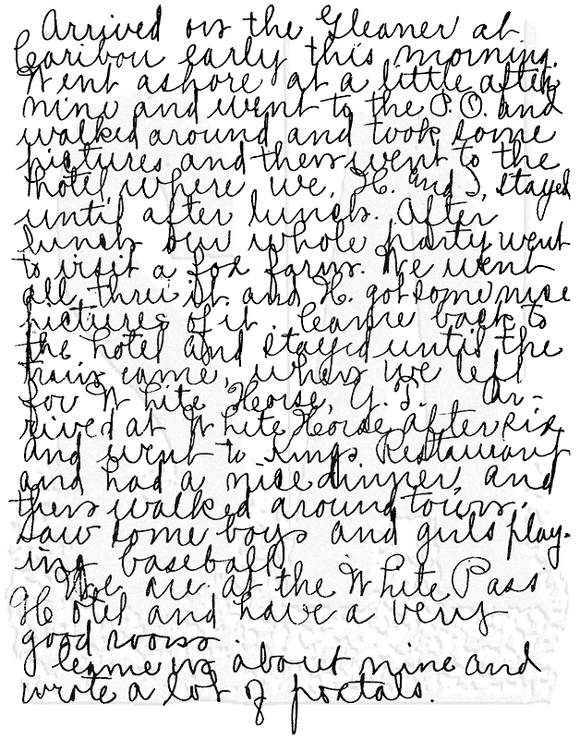 Arrived on the Gleaner at
Caribou early this morning.
Went ashore at a little after
nine and went to the P.O. and
walked around and took some
pictures and then went to the
hotel where we, H. and I, stayed
until after lunch. After
lunch our whole party went
to visit a fox farm. We went
all thru it. and H. got some nice
pictures of it. Came back to
the hotel and stayed until the
train came, when we left
for White Horse, Y.T. Ar-
rived at White Horse after six
and went to Kings Restaurant
and had a nice dinner, and
then walked around town.
Saw some boys and girls play-
ing baseball.
We are at the White Pass
Hotel and have a very
good room.
Came in about nine and
wrote a lot of postals.